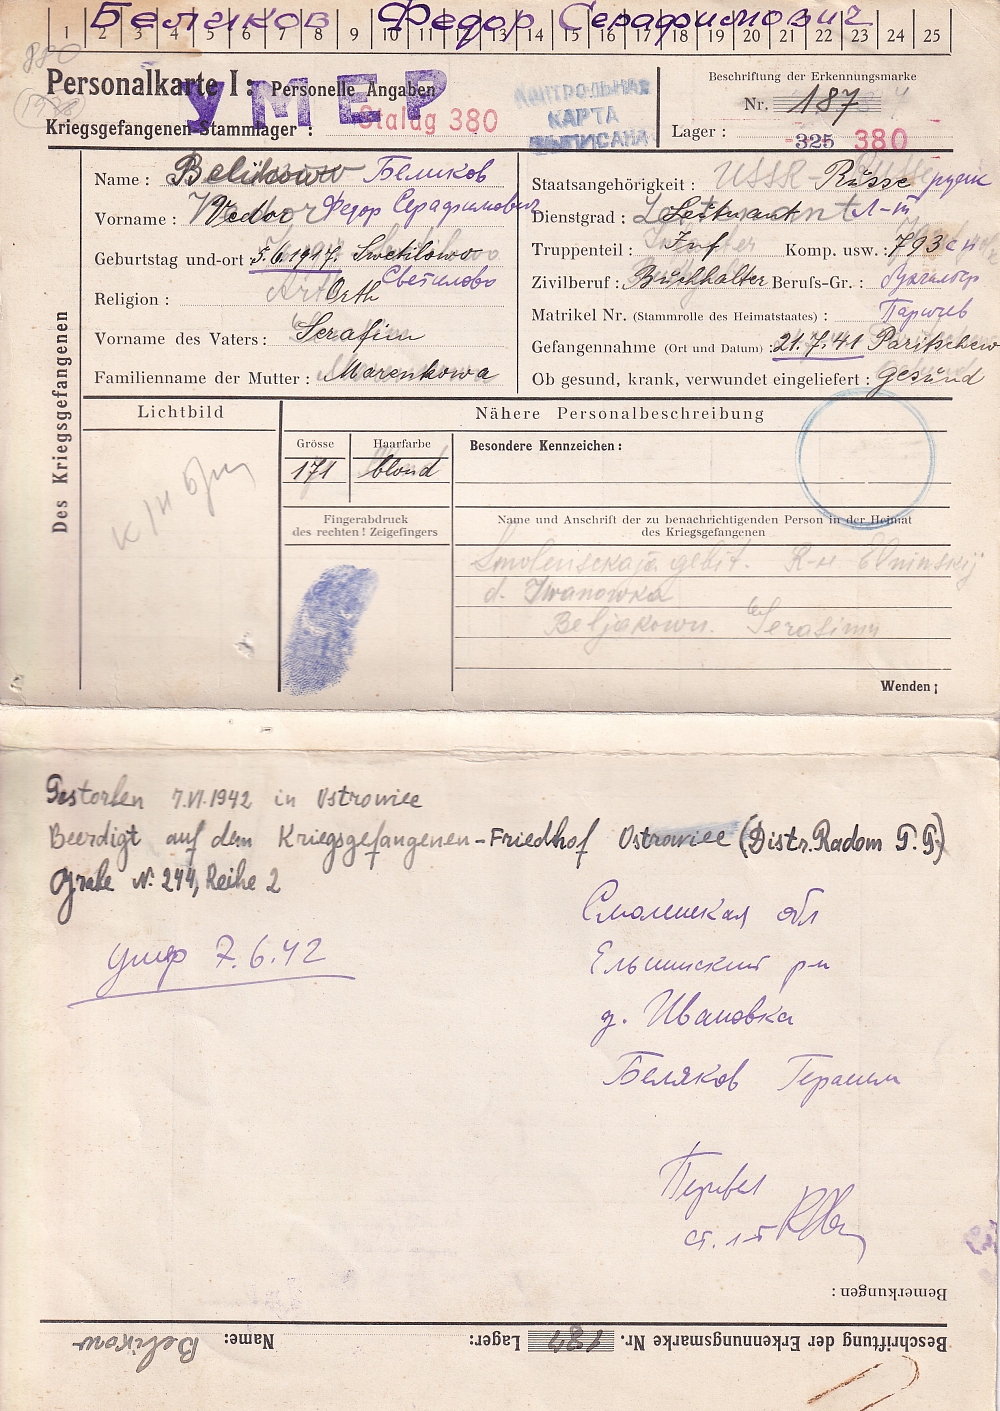 Беликов Федор Серафимович
1 2 3 4 5 6 7 8 9 10 11 12 13 14 15 16 17 18 19 20 21 22 23 24 25
880
Personalkarte I: Personelle Angaben
УМЕР
Kriegsgefangenen-Stammlager: Stalag 380
КОНТРОЛЬНАЯ
КАРТА
ВЫПИСАНА
Beschriftung der Erkennungsmarke
Nr. 187
Lager: 325 380
Des Kriegsgefangenen
Name: Belikow Беликов
Vorname: Fedor Федор Серафимович
Geburtstag und-ort 5.6.1917. Swetilowo
Светилово
Religion: Orth
Vorname des Vaters: Serafim
Familienname der Mutter: Marenkowa
Staatsangehörigkeit: USSR- Russe русск
Dienstgrad: Leutnant Л-т
Truppenteil: Inf Komp. usw.: 793 с п
Zivilberuf: Buchhalter Berufs-Gr.: бухгальтер
Matrikel Nr. (Stammrolle des Heimatstaates): Паричев
Gefangennahme (Ort und Datum): 21.7.41 Paritschew
Ob gesund, krank, verwundet eingeliefert: gesund
Lichtbild
Nähere Personalbeschreibung
Grösse
171
Haarfarbe
blond
Besondere Kennzeichen:
Fingerabdruck
des rechten! Zeigefingers
Name und Anschrift der zu benachrichtigenden Person in der Heimat
des Kriegsgefangenen
Smolenskaja gebit. R-н Elninskij
d. Iwanowka
Beljakown. Serafimm
Wenden;
Gestorben 7.VI.1942 in Ostrowiec
Beerdigt auf dem Kriegsgefangenen-Friedhof Ostrowiec (Distr. Radom G.G.)
Grabe N. 244, Reihe 2
умер 7.6.42
Смоленская обл
Ельнинский р-н
д. Ивановка
Беляков Герасим
Перевел
ст. л-т
Bemerkungen:
Beschriftung der Erkennungsmarke Nr. 187 Lager: Name: Belikow